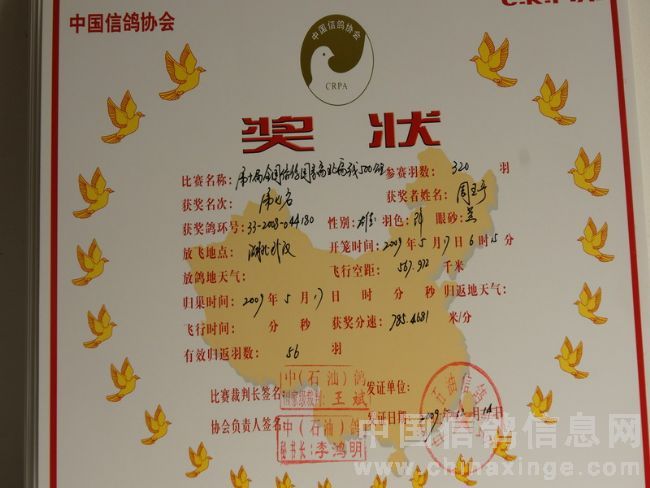 中国信鸽协会
中国信鸽协会
CRPA
奖状
比赛名称: 500公里 参赛羽数: 320 羽
获奖名次: 获奖者姓名:
获奖鸽环号: 33-2008-044180 性别: 雄 羽色: 眼砂: 黄
放飞地点: 湖北武汉 开笼时间: 2009 年 5 月 17 日 6 时 15 分
放鸽地天气: 飞行空距: 567.972 千米
归巢时间: 2009 年 5 月 17 日 时 分 秒 归返地天气:
飞行时间: 分 秒 获奖分速: 785.4681 米/分
有效归返羽数: 56 羽
中(石油)鸽
比赛裁判长签名: 王斌 发证单位:
协会负责人签名: 中(石油)鸽 发证日期: 2009.
秘书长: 李鸿明
石油信鸽
中国信鸽信息网
www.chinaxinge.com